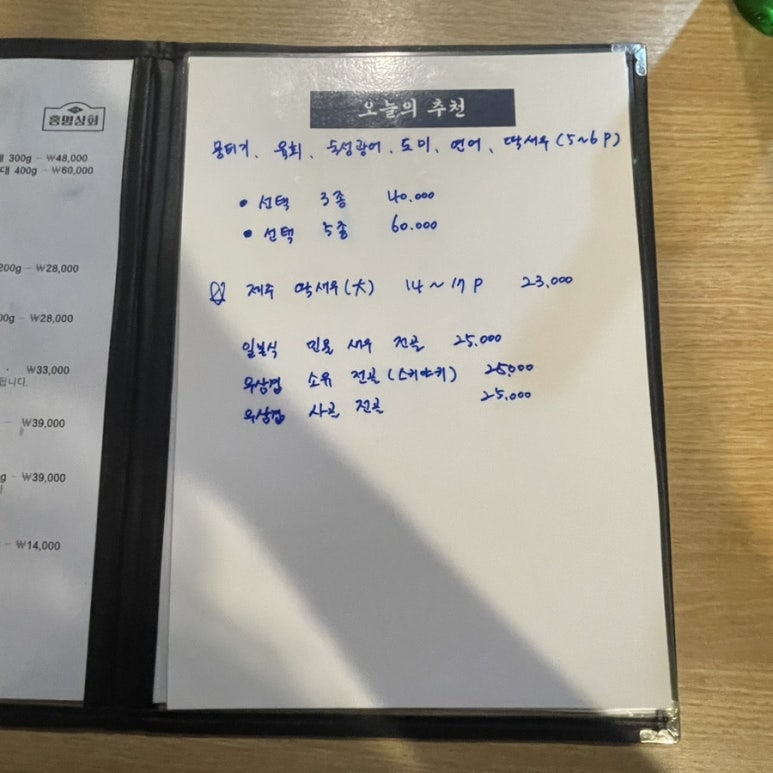 홍명상회
300g - ₩48,000
대 400g - ₩60,000
200g - ₩28,000
0g - ₩28,000
₩33,000
됩니다.
- ₩39,000
g - ₩39,000
- ₩14,000
오늘의 추천
뭉티기, 육회, 숙성광어, 도미, 연어, 딱새우 (5~6P)
• 선택 3종 40.000
• 선택 5종 60.000
제주 딱새우(大) 14~17P 23,000
일본식 민물 새우 전골 25.000
우삼겹 소유 전골 (스키야키) 25,000
우삼겹 사골 전골 25.000